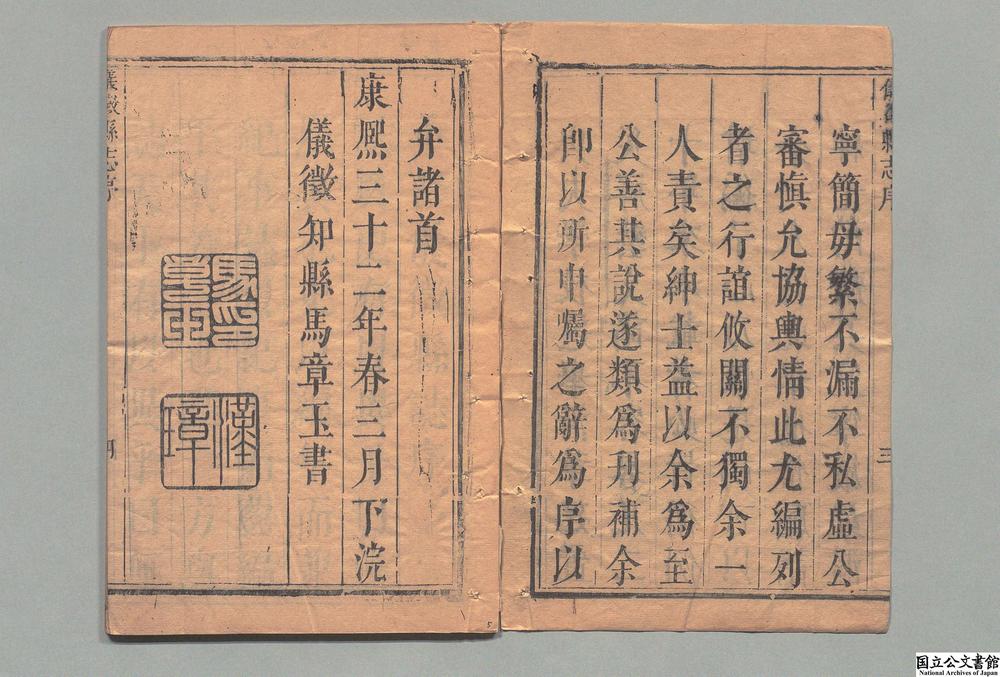 寧簡毋繁不漏不私虛公
審愼允協輿情此尤編列
者之行誼攸關不獨余一
人責矣紳士益以余爲至
公善其說遂類爲刊補余
卽以所申囑之辭爲序以
三
弁諸首
康熙三十二年春三月下浣
儀徵知縣馬章玉書
馬印章玉
漢璋
儀徵縣志序
四
国立公文書館
National Archives of Japan